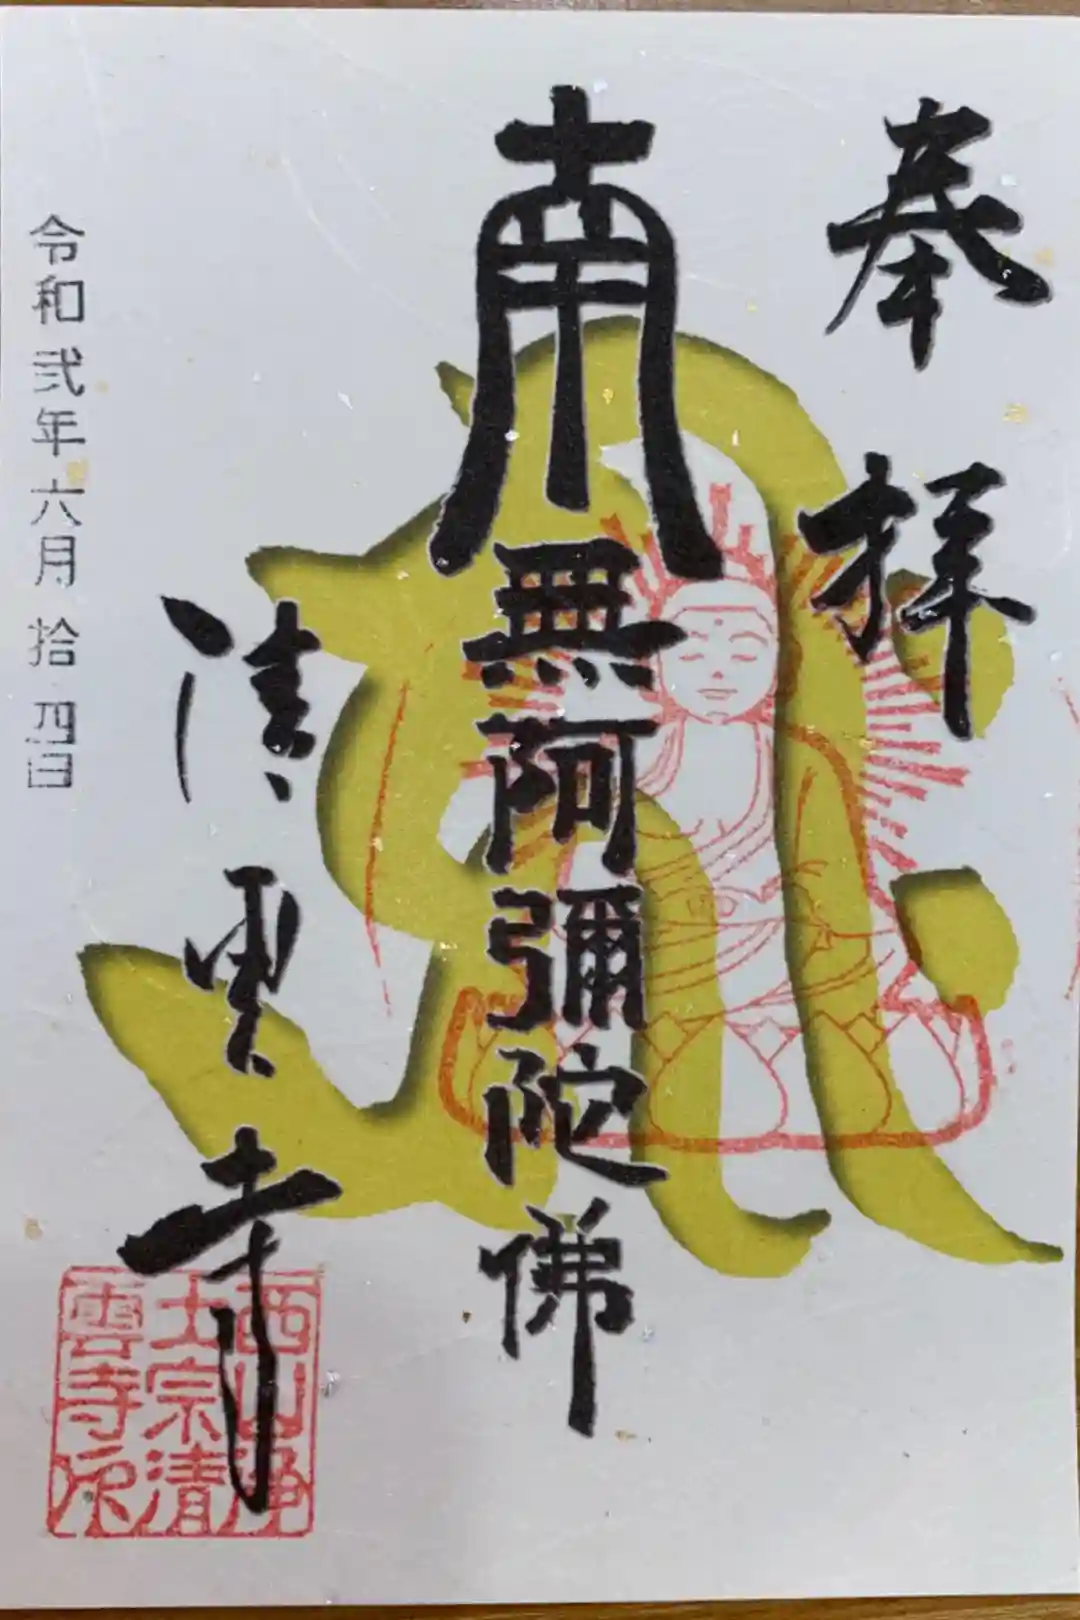 奉拝
南無阿彌陀佛
清雲寺
令和弐年六月拾四日
西山浄
土宗清
雲寺印